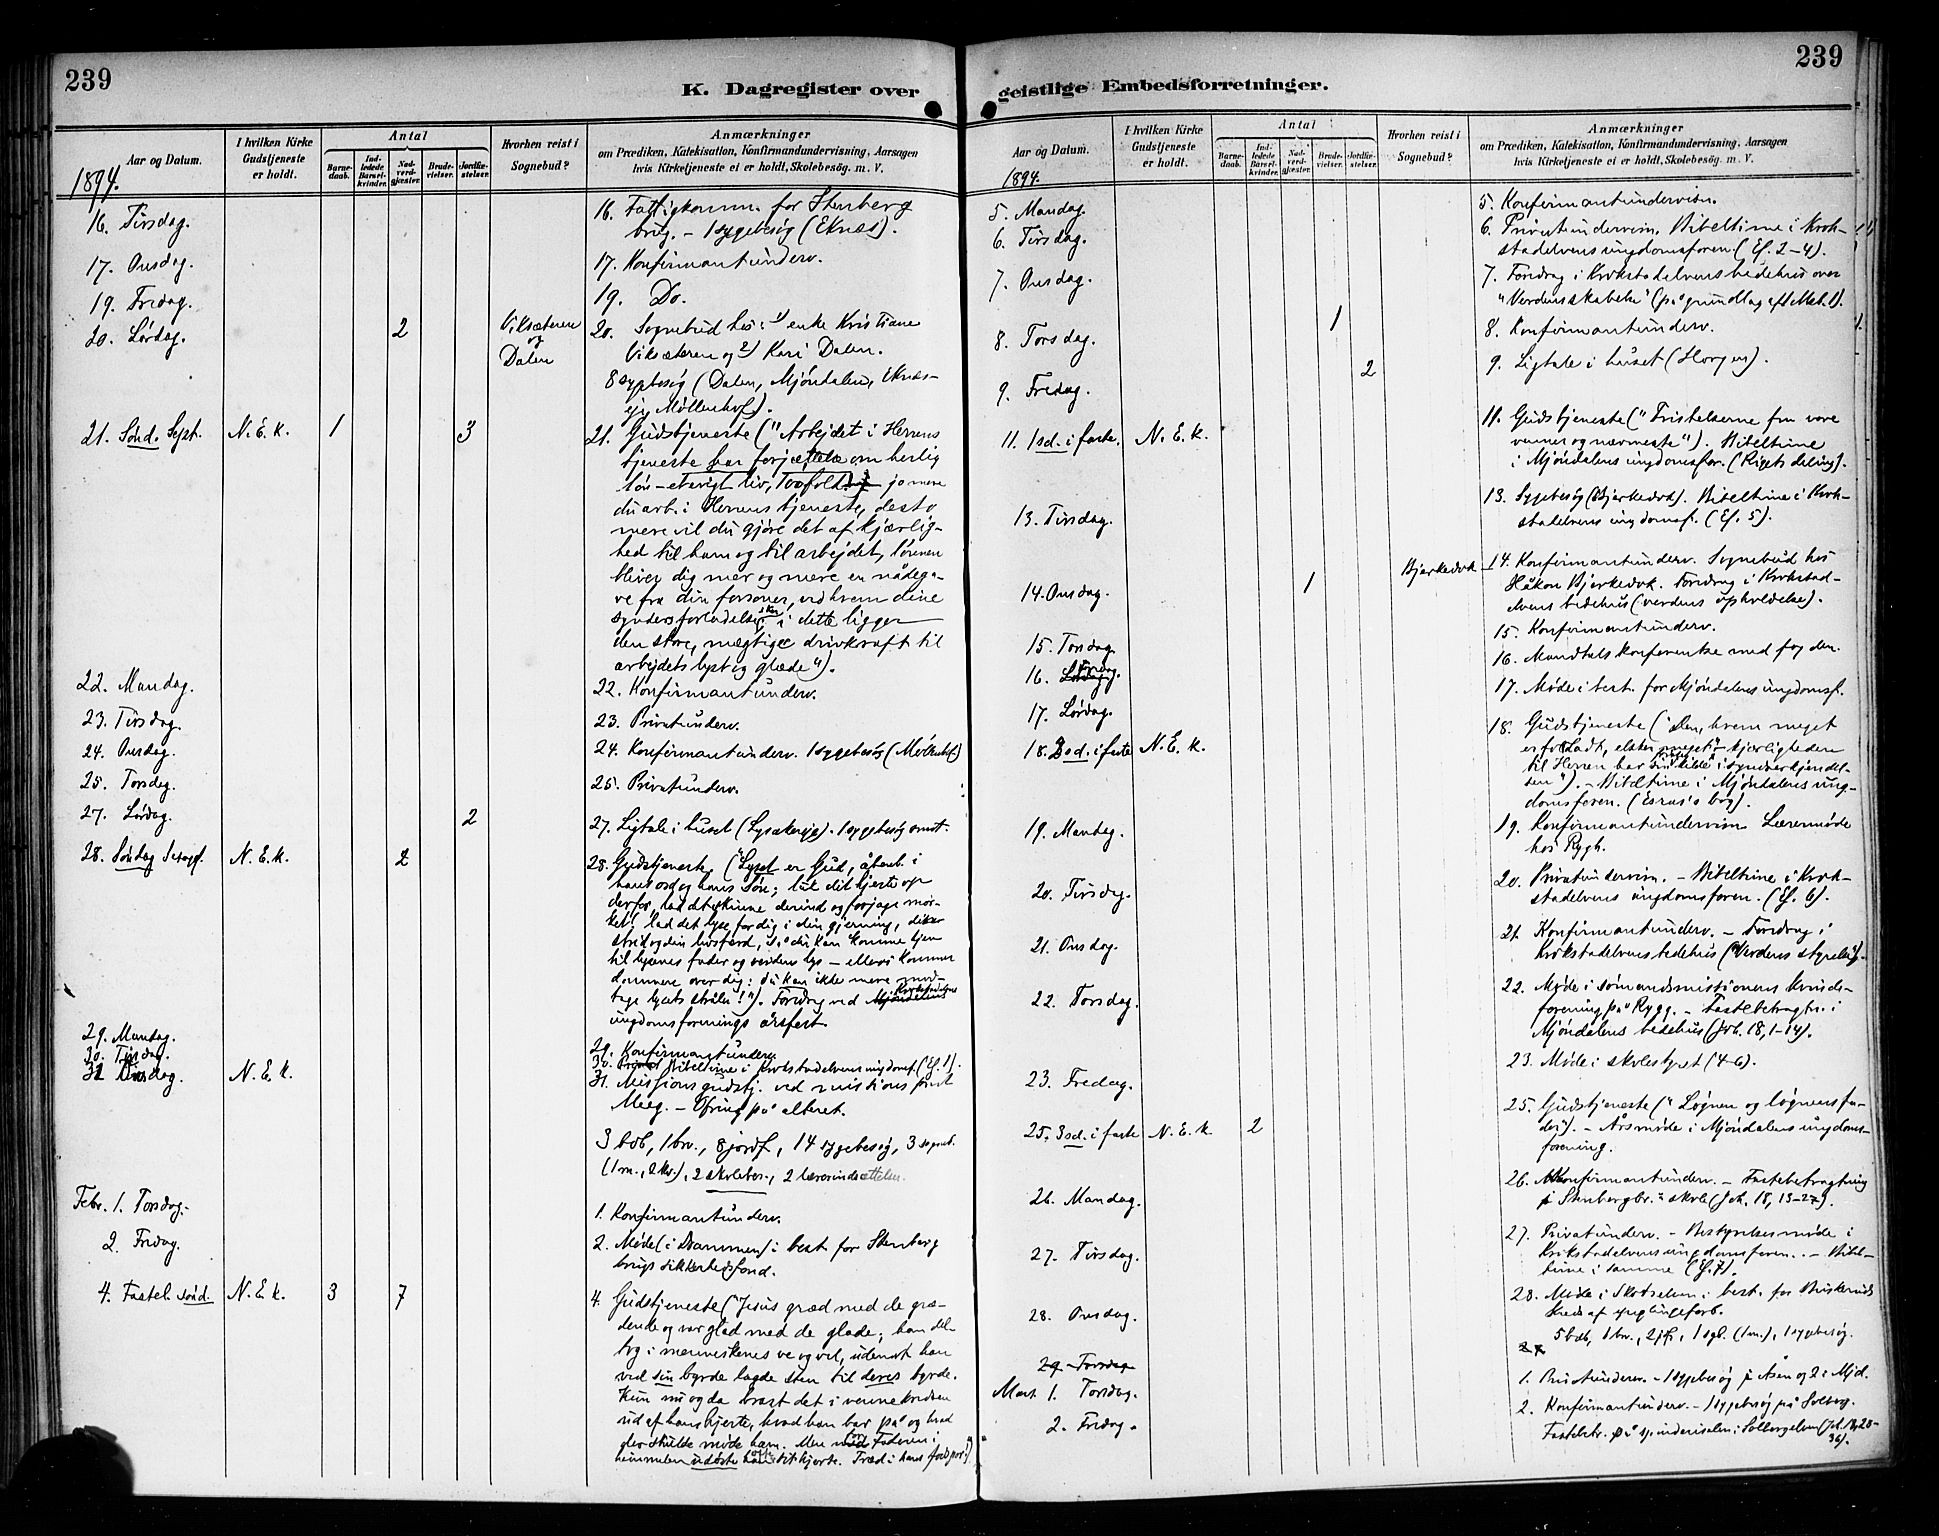 239
K. Dagregister over
Aar og Datum.
I hvilken Kirke Gudstjeneste er holdt.
Antal
Barne-daab.
Ind-ledede Barsel-kvinder.
Nad-verd-gjæster.
Brude-vielser.
Jordfæ-stelser.
Hvorhen reist i Sognebud?
Anmærkninger
om Prædiken, Katekisation, Konfirmandundervisning, Aarsagen
hvis Kirketjeneste ei er holdt, Skolebesøg. m. V.
1894.
16. Tirsdag.
16. Fattigkomm. for Stenberg
brug. – 1 sygebesøg (Eknes).
17. Onsdag.
17. Konfirmantunderv.
19. Fredag.
19. Do.
20. Lørdag.
2
Viksæteren
og
Dalen
20. Sognebud hos: 1) enke Kristiane
Viksæteren og 2) Kari Dalen.
8 sygebesøg (Dalen, Mjøndalen, Eknes-
eje, Møllenhof).
21. Sønd. Sept.
N. E. k.
1
3
21. Gudstjeneste ("Arbejdet i Herrens
tjeneste har forjættelse om herlig
løn – et evigt liv, jo mere
du arb. i Herrens tjeneste, desto
mere vil du gjøre det af kjærlig-
hed til ham og til arbejdet, lønnen
bliver dig mer og mere en nådega-
ve fra din forsoner, ved hvem dine
synders forladelse sker i dette ligger
den store, mægtige drivkraft til
arbejdets lyst og glæde").
22. Mandag.
22. Konfirmantunderv.
23. Tirsdag.
23. Privatunderv.
24. Onsdag.
24. Konfirmantunderv. 1 sygebesøg (Møllenhof)
25. Torsdag.
25. Privatunderv.
27. Lørdag.
2
27. Ligtale i huset (Lysakereje). 1 sygebesøg smst.
28. Søndag Seragf.
N. E. k.
2
28. Gudstjeneste. ("Lyset er Gud, åbenb. i
hans ord og hans Søn; luk dit hjerte op
derfor, lad det skinne derind og forjage mør-
ket! lad det lyse for dig i din gjerning, din
strid og din hosfærd, så du kan komme hjem
til lysenes fader og verdens lys – ellers kommer
dommen over dig: du kan ikke mere mod-
tage lysets stråler!"). Foredrag ved Krokstadelvens
ungdomsforenings årsfest.
29. Mandag.
29. Konfirmantunderv.
30. Tirsdag.
30. Bibeltime i Krokstadelvens ungdomsf. (Ef. 1).
31. Onsdag.
N. E. k.
31. Missionsgudstj. ved missionsprest
Meeg. – Ofring på alteret.
3 bdb, 1 brv., 8 jordf., 14 sygebesøg, 3 sogneb.
(1 m., 2 kv.), 2 skolebes., 2 lærerindsættelser.
Febr. 1. Torsdag.
1. Konfirmantunderv.
2. Fredag.
2. Møde (i Drammen) i best. for Stenberg
brugs sikkerhedsfond.
4. Fastel. sønd.
N. E. k.
3
7
4. Gudstjeneste ("Jesus græd med de græ-
dende og var glad med de glade; han del-
tog i menneskenes ve og vel, uden at han
ved sin byrde lagde sten til deres byrde.
Kun nu og da brast det i vennekredsen
ud af hans hjerte, hvad han bar på og hvad
der skulde møde ham. Men for Faderen i
himmelen udøste han alt sit hjerte. Træd i hans fodspor!")
239
geistlige Embedsforretninger.
Aar og Datum.
I hvilken Kirke Gudstjeneste er holdt.
Antal
Barne-daab.
Ind-ledede Barsel-kvinder.
Nad-verd-gjæster.
Brude-vielser.
Jordfæ-stelser.
Hvorhen reist i Sognebud?
Anmærkninger
om Prædiken, Katekisation, Konfirmandundervisning, Aarsagen
hvis Kirketjeneste ei er holdt, Skolebesøg. m. V.
1894.
5. Mandag.
5. Konfirmantundervisn.
6. Tirsdag.
6. Privatundervisn. Bibeltime i Krok-
stadelvens ungdomsforen. (Ef. 2–4).
7. Onsdag.
7. Foredrag i Krokstadelvens bedehus over
"Verdens skabelse" (på grundlag af 1 Mos. 1).
8. Torsdag.
1
8. Konfirmantunderv.
9. Fredag.
2
9. Ligtale i huset (Horgen).
11. 1 sd. i faste.
N. E. k.
11. Gudstjeneste ("Fristelserne fra vore
venner og nærmeste"). Bibeltime
i Mjøndalens ungdomsfor. (Rigets deling).
13. Tirsdag.
13. Sygebesøg (Bjerkedok). Bibeltime i Krok-
stadelvens ungdomsf. (Ef. 5).
14. Onsdag.
1
Bjerkedok
14. Konfirmantunderv. Sognebud hos
Håkon Bjerkedok. Foredrag i Krokstad-
elvens bedehus (verdens opholdelse).
15. Torsdag.
15. Konfirmantunderv.
16. Fredag.
16. Mandtalskonferentse med fogden.
17. Lørdag.
17. Møde i best. for Mjøndalens ungdomsf.
18. 2 sd. i faste
N. E. k.
18. Gudstjeneste ("Den, hvem meget
er forladt, elsker meget" – kjærligheden
til Herren har sin kilde i syndserkjendel-
sen"). – Bibeltime i Mjøndalens ung-
domsforen. (Esras's bog).
19. Mandag.
19. Konfirmantundervisn. Lærermøde
hos Rygh.
20. Tirsdag.
20. Privatundervisn. – Bibeltime i Krok-
stadelvens ungdomsforen. (Ef. 6).
21. Onsdag.
21. Konfirmantunderv. – Foredrag i
Krokstadelvens bedehus ("Verdens styrelse").
22. Torsdag.
22. Møde i sømandsmissionens kvinde-
forening på Rygg. – Fastebetragtn. i
Mjøndalens bedehus (Joh. 18, 1–14).
23. Fredag.
23. Møde i skolestyret (4–6).
25. 3 sd. i faste
N. E. k.
2
25. Gudstjeneste ("Løgnen og løgnens fa-
der"). – Årsmøde i Mjøndalens ungdoms-
forening.
26. Mandag.
26. Konfirmantunderv. – Fastebetragtning
på Stenbergbr.s skole (Joh. 18, 15–27).
27. Tirsdag.
27. Privatunderv. – Bestyrelsesmøde i
Krokstadelvens ungdomsforen. – Bibel-
time i samme (Ef. 7).
28. Onsdag.
28. Møde i Skotselven i best. for Buskeruds
kreds af ynglingeforb.
5 bdb, 1 brv., 2 jf., 1 sgb. (1 m.), 1 sygebesøg.
29. Torsdag
Mart. 1. Torsdag.
1. Privatunderv. – 1 sygebesøg på Åsen og 2 i Mjd.
2. Fredag.
2. Konfirmantunderv. – 1 sygebesøg på Solberg.
Fastebtr. på spinderisalen i Solbergelven (Joh. 18, 28–
36).